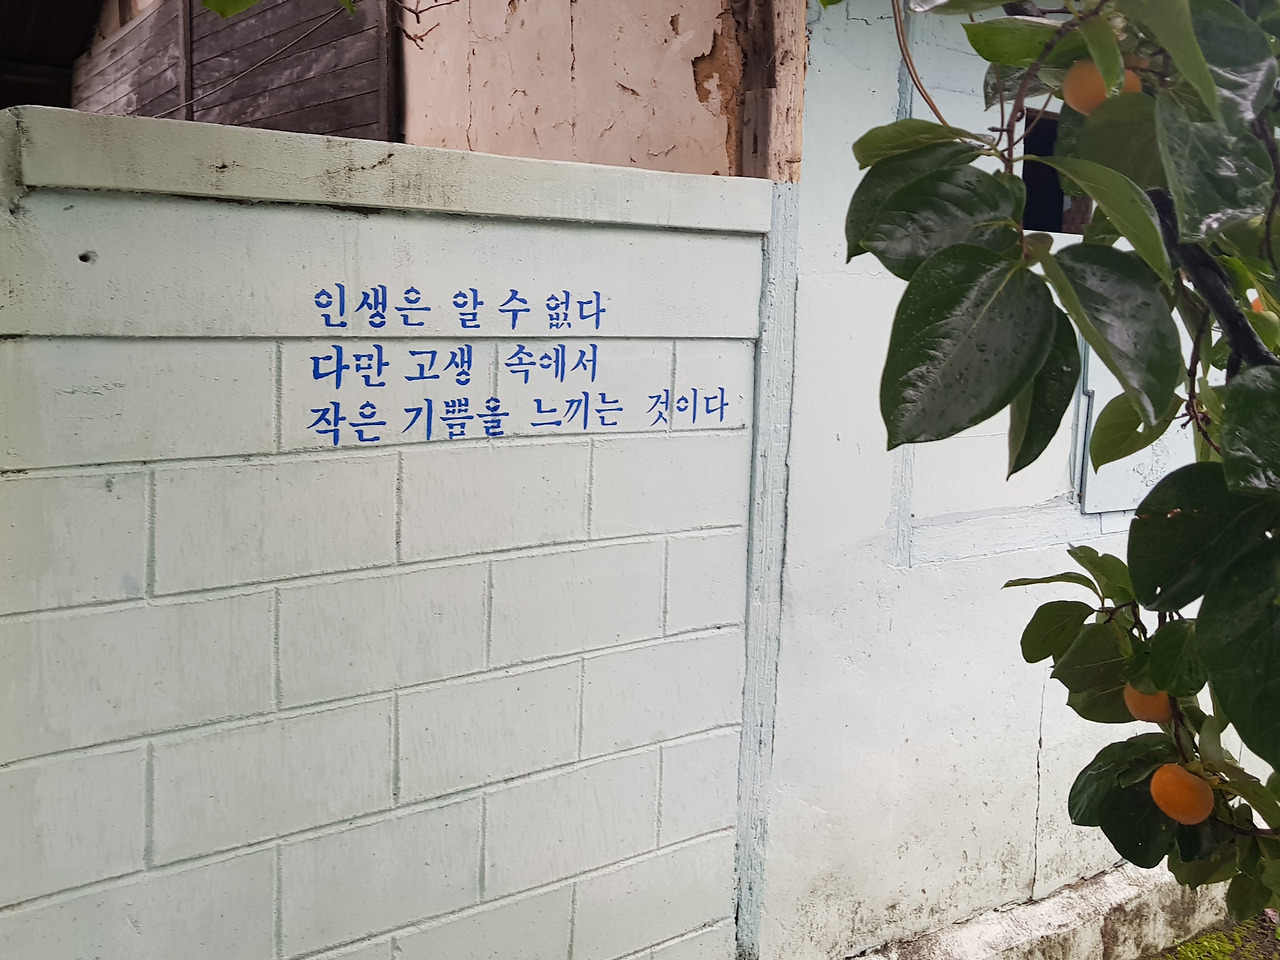 인생은 알 수 없다
다만 고생 속에서
작은 기쁨을 느끼는 것이다